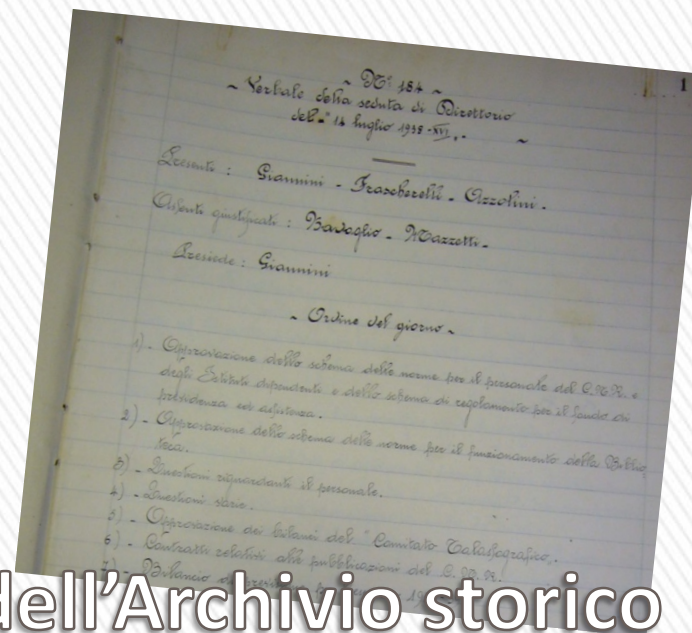 1
~ N° 184 ~
~ Verbale della seduta di Direttorio
del 14 luglio 1938-XVI. ~
Presenti : Giannini - Frascherelli - Azzolini.
Assenti giustificati : Bavaglio - Mazzetti.
Presiede : Giannini
~ Ordine del giorno ~
1) - Approvazione dello schema delle norme per il personale del C.N.R. e
degli Istituti dipendenti e dello schema di regolamento per il fondo di
previdenza ed assistenza.
2) - Approvazione dello schema delle norme per il funzionamento della Biblio
teca.
3) - Questioni riguardanti il personale.
4) - Questioni varie.
5) - Approvazione dei bilanci del "Comitato Talassografico".
6) - Contratti relativi alle pubblicazioni del C.N.R.
7) - Bilancio
dell'Archivio storico